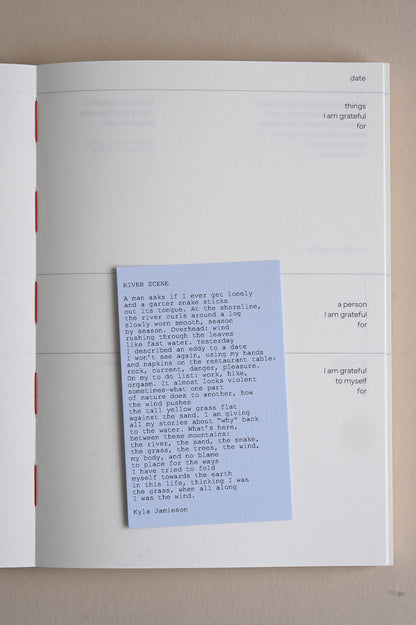 date
things
I am grateful
for
a person
I am grateful
for
I am grateful
to myself
for
RIVER SCENE
A man asks if I ever get lonely
and a garter snake sticks
out its tongue. At the shoreline,
the river curls around a log
slowly worn smooth, season
by season. Overhead: wind
rushing through the leaves
like fast water. Yesterday
I described an eddy to a date
I won't see again, using my hands
and napkins on the restaurant table:
rock, current, danger, pleasure.
On my to do list: work, hike,
orgasm. It almost looks violent
sometimes—what one part
of nature does to another, how
the wind pushes
the tall yellow grass flat
against the sand. I am giving
all my stories about "why" back
to the water. What's here,
between these mountains:
the river, the sand, the snake,
the grass, the trees, the wind,
my body, and no blame
to place for the ways
I have tried to fold
myself towards the earth
in this life, thinking I was
the grass, when all along
I was the wind.
Kyla Jamieson